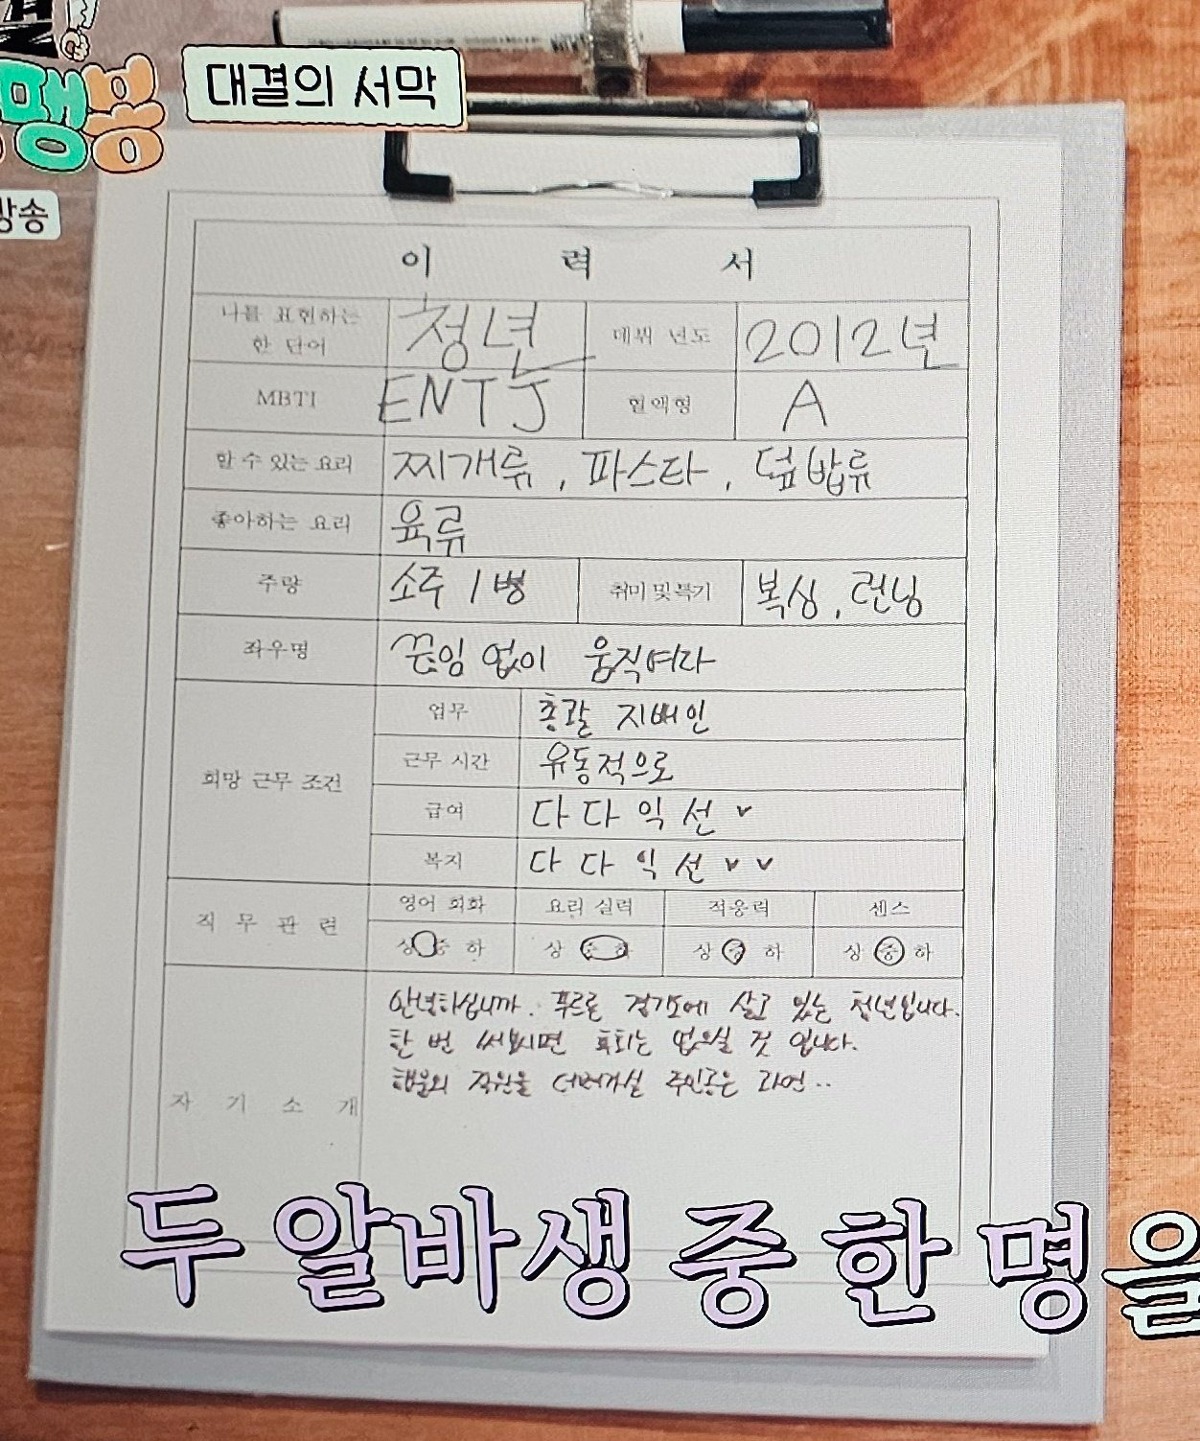 대결의 서막
맹
방송
이 력 서
나를 표현하는 한 단어 청년 데뷔 년도 2012년
MBTI ENTJ 혈액형 A
할 수 있는 요리 찌개류, 파스타, 덮밥류
좋아하는 요리 육류
주량 소주 1병 취미 및 특기 복싱, 런닝
좌우명 끈임 없이 움직여라
희망 근무 조건
업무 총괄 지배인
근무 시간 유동적으로
급여 다다익선
복지 다다익선
직 무 관 련
영어 회화 요리 실력 적응력 센스
상 중 하 상 중 하 상 중 하 상 중 하
자 기 소 개
안녕하십니까. 푸르른 경기도에 살고 있는 청년입니다.
한 번 써보시면 후회는 없으실 것 입니다.
직원을 데려가실 주인공은 과연..
두 알바생 중 한 명을